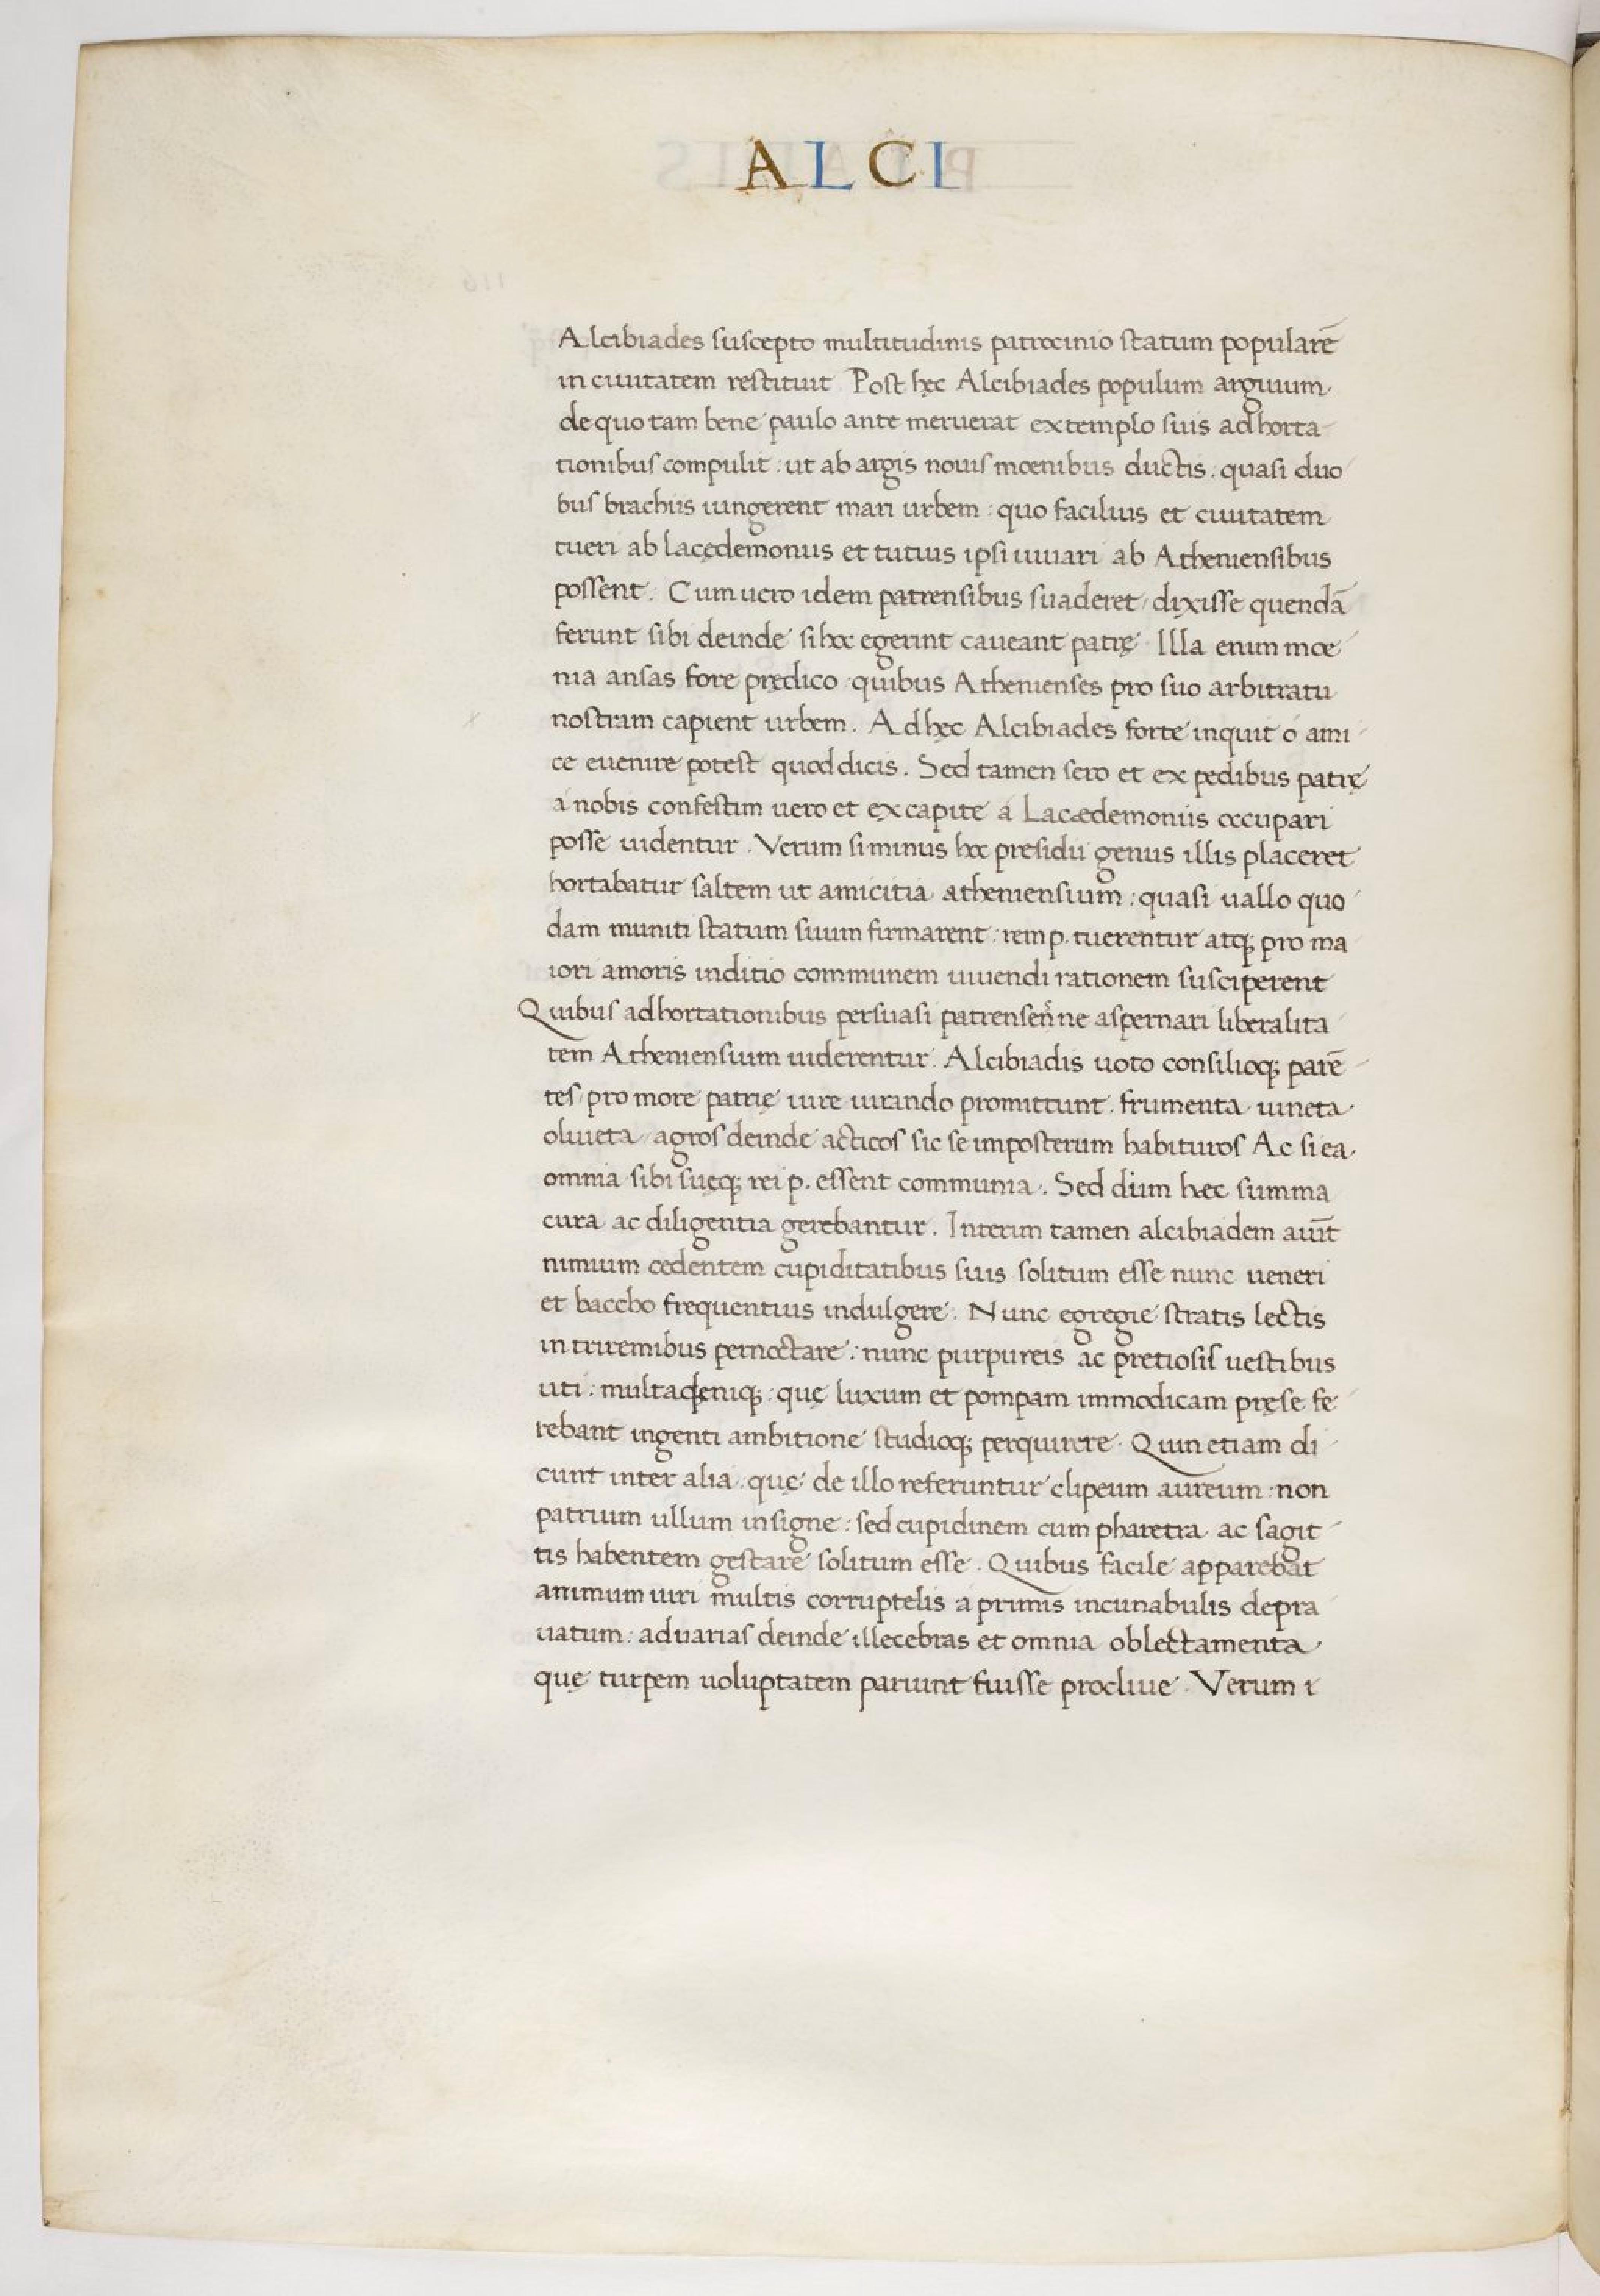 ALCI
Alcibiades suscepto multitudinis patrocinio statum popularē
in ciuitatem restituit Post hęc Alcibiades populum arguum
de quo tam bene paulo ante meruerat extemplo suis adhorta
tionibus compulit : ut ab argis nouis moenibus ductis . quasi duo
bus brachiis iungerent mari urbem : quo facilius et ciuitatem
tueri ab lacędemoniis et tutius ipsi iuuari ab Atheniensibus
possent . Cum uero idem patrensibus suaderet / dixisse quendā
ferunt sibi deinde si hoc egerint caueant patrę . Illa enim moe
nia ansas fore prędico . quibus Athenienses pro suo arbitratu
nostram capient urbem . Ad hęc Alcibiades forte inquit ó ami
ce euenire potest quod dicis . Sed tamen sero et ex pedibus patrę
a nobis confestim uero et ex capite a Lacædemoniis occupari
posse uidentur . Verum si minus hoc presidii genus illis placeret
hortabatur saltem ut amicitia atheniensium : quasi uallo quo
dam muniti statum suum firmarent : rem p. tuerentur atq; pro ma
iori amoris inditio communem uiuendi rationem susciperent
Quibus adhortationibus persuasi patrenses ne aspernari liberalita
tem Atheniensium uiderentur . Alcibiadis uoto consilioq; parē
tes / pro more patrię iure iurando promittunt . frumenta uineta
oliueta / agros deinde acticos sic se imposterum habituros Ac si ea
omnia sibi suęq; rei p. essent communia . Sed dum hæc summa
cura ac diligentia gerebantur . Interim tamen alcibiadem aiūt
nimium cedentem cupiditatibus suis solitum esse nunc ueneri
et baccho frequentius indulgere . Nunc egregie stratis lectis
in triremibus pernoctare : nunc purpureis ac pretiosis uestibus
uti : multa deniq; : quę luxum et pompam immodicam pręse fe
rebant ingenti ambitione studioq; perquirere . Quin etiam di
cunt inter alia . quę de illo referuntur clipeum aureum : non
patrium ullum insigne : sed cupidinem cum pharetra ac sagit
tis habentem gestare solitum esse . Quibus facile apparebat
animum uiri multis corruptelis a primis incunabulis depra
uatum : ad uarias deinde illecebras et omnia oblectamenta
quę turpem uoluptatem pariunt fuisse procliue . Verum i